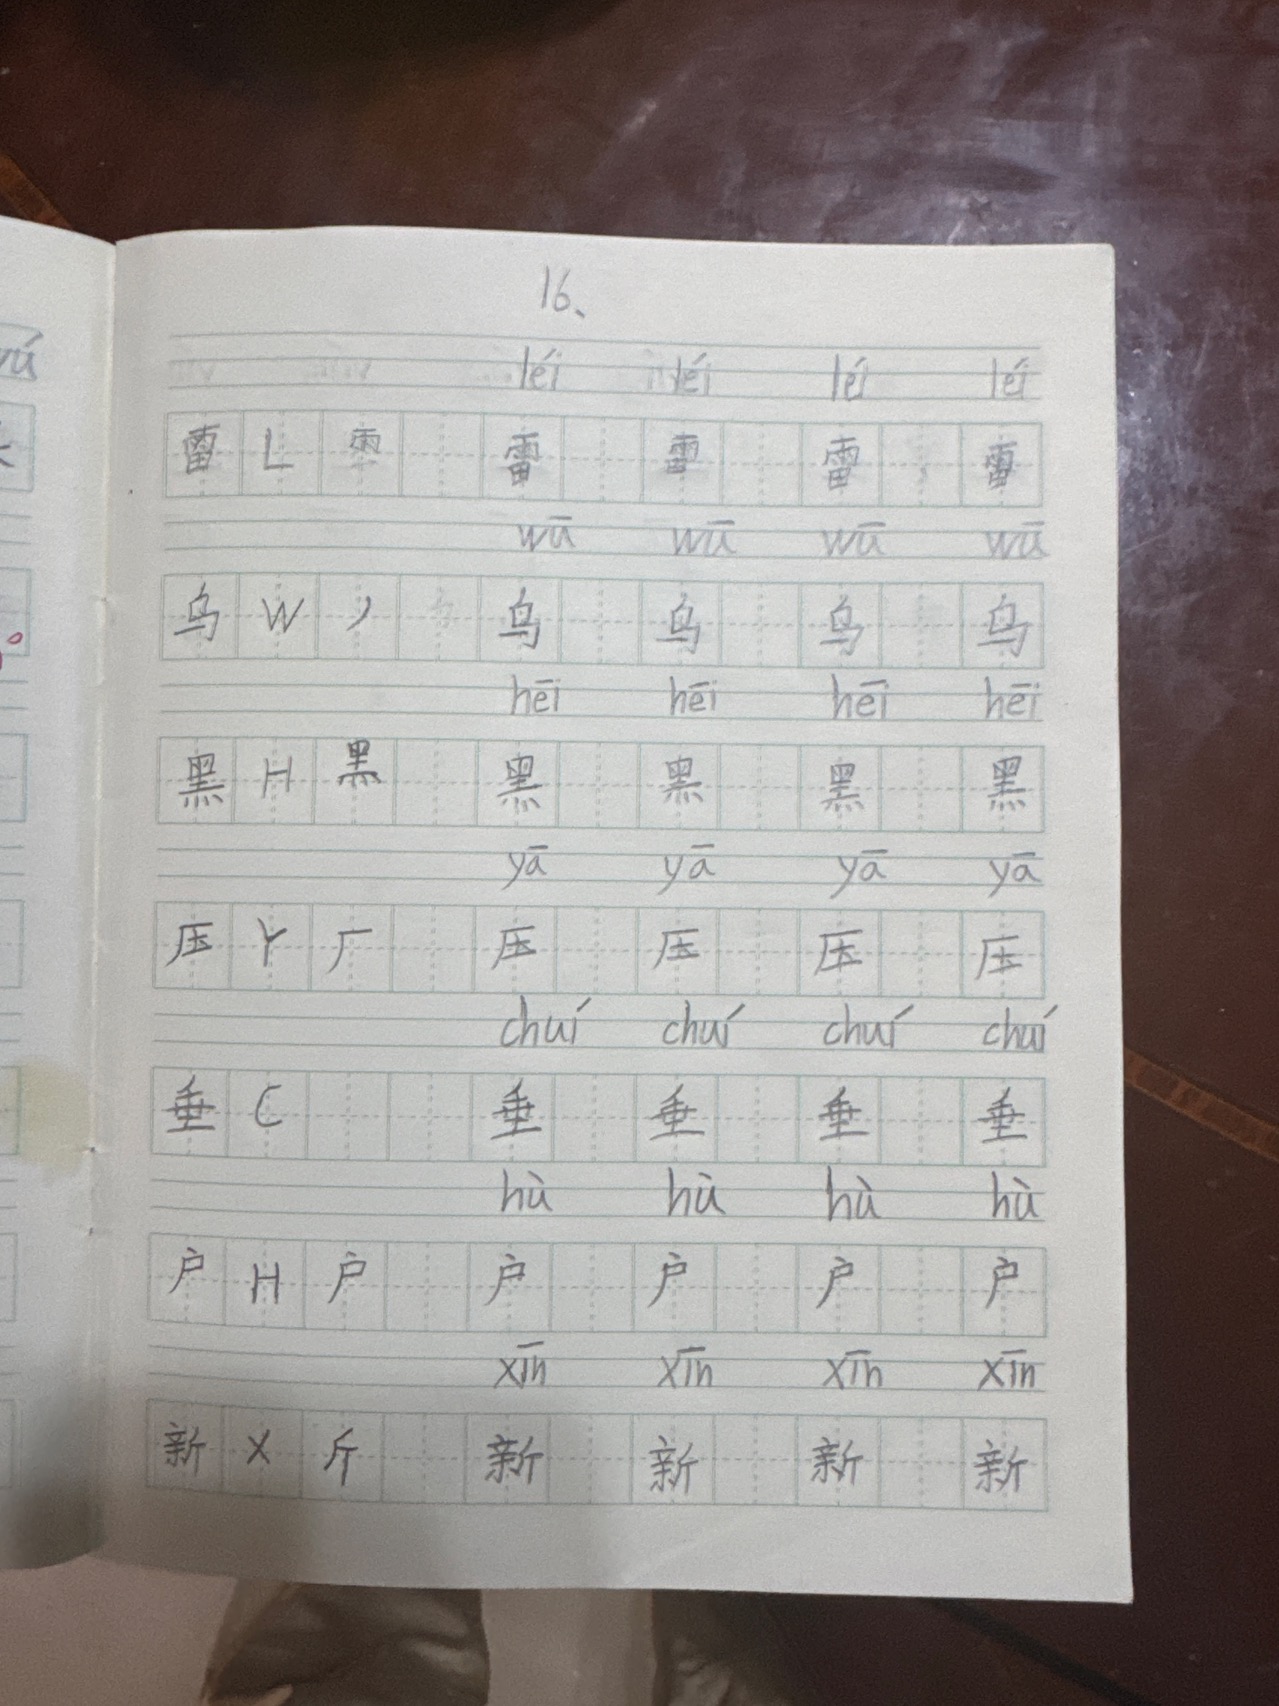 16、
léi léi léi léi
雷 L 雨 雷 雷 雷 雷
wū wū wū wū
乌 W 丿 乌 乌 乌 乌
hēi hēi hēi hēi
黑 H 黑 黑 黑 黑 黑
yā yā yā yā
压 Y 厂 压 压 压 压
chuí chuí chuí chuí
垂 C 垂 垂 垂 垂
hù hù hù hù
户 H 户 户 户 户 户
xīn xīn xīn xīn
新 X 斤 新 新 新 新